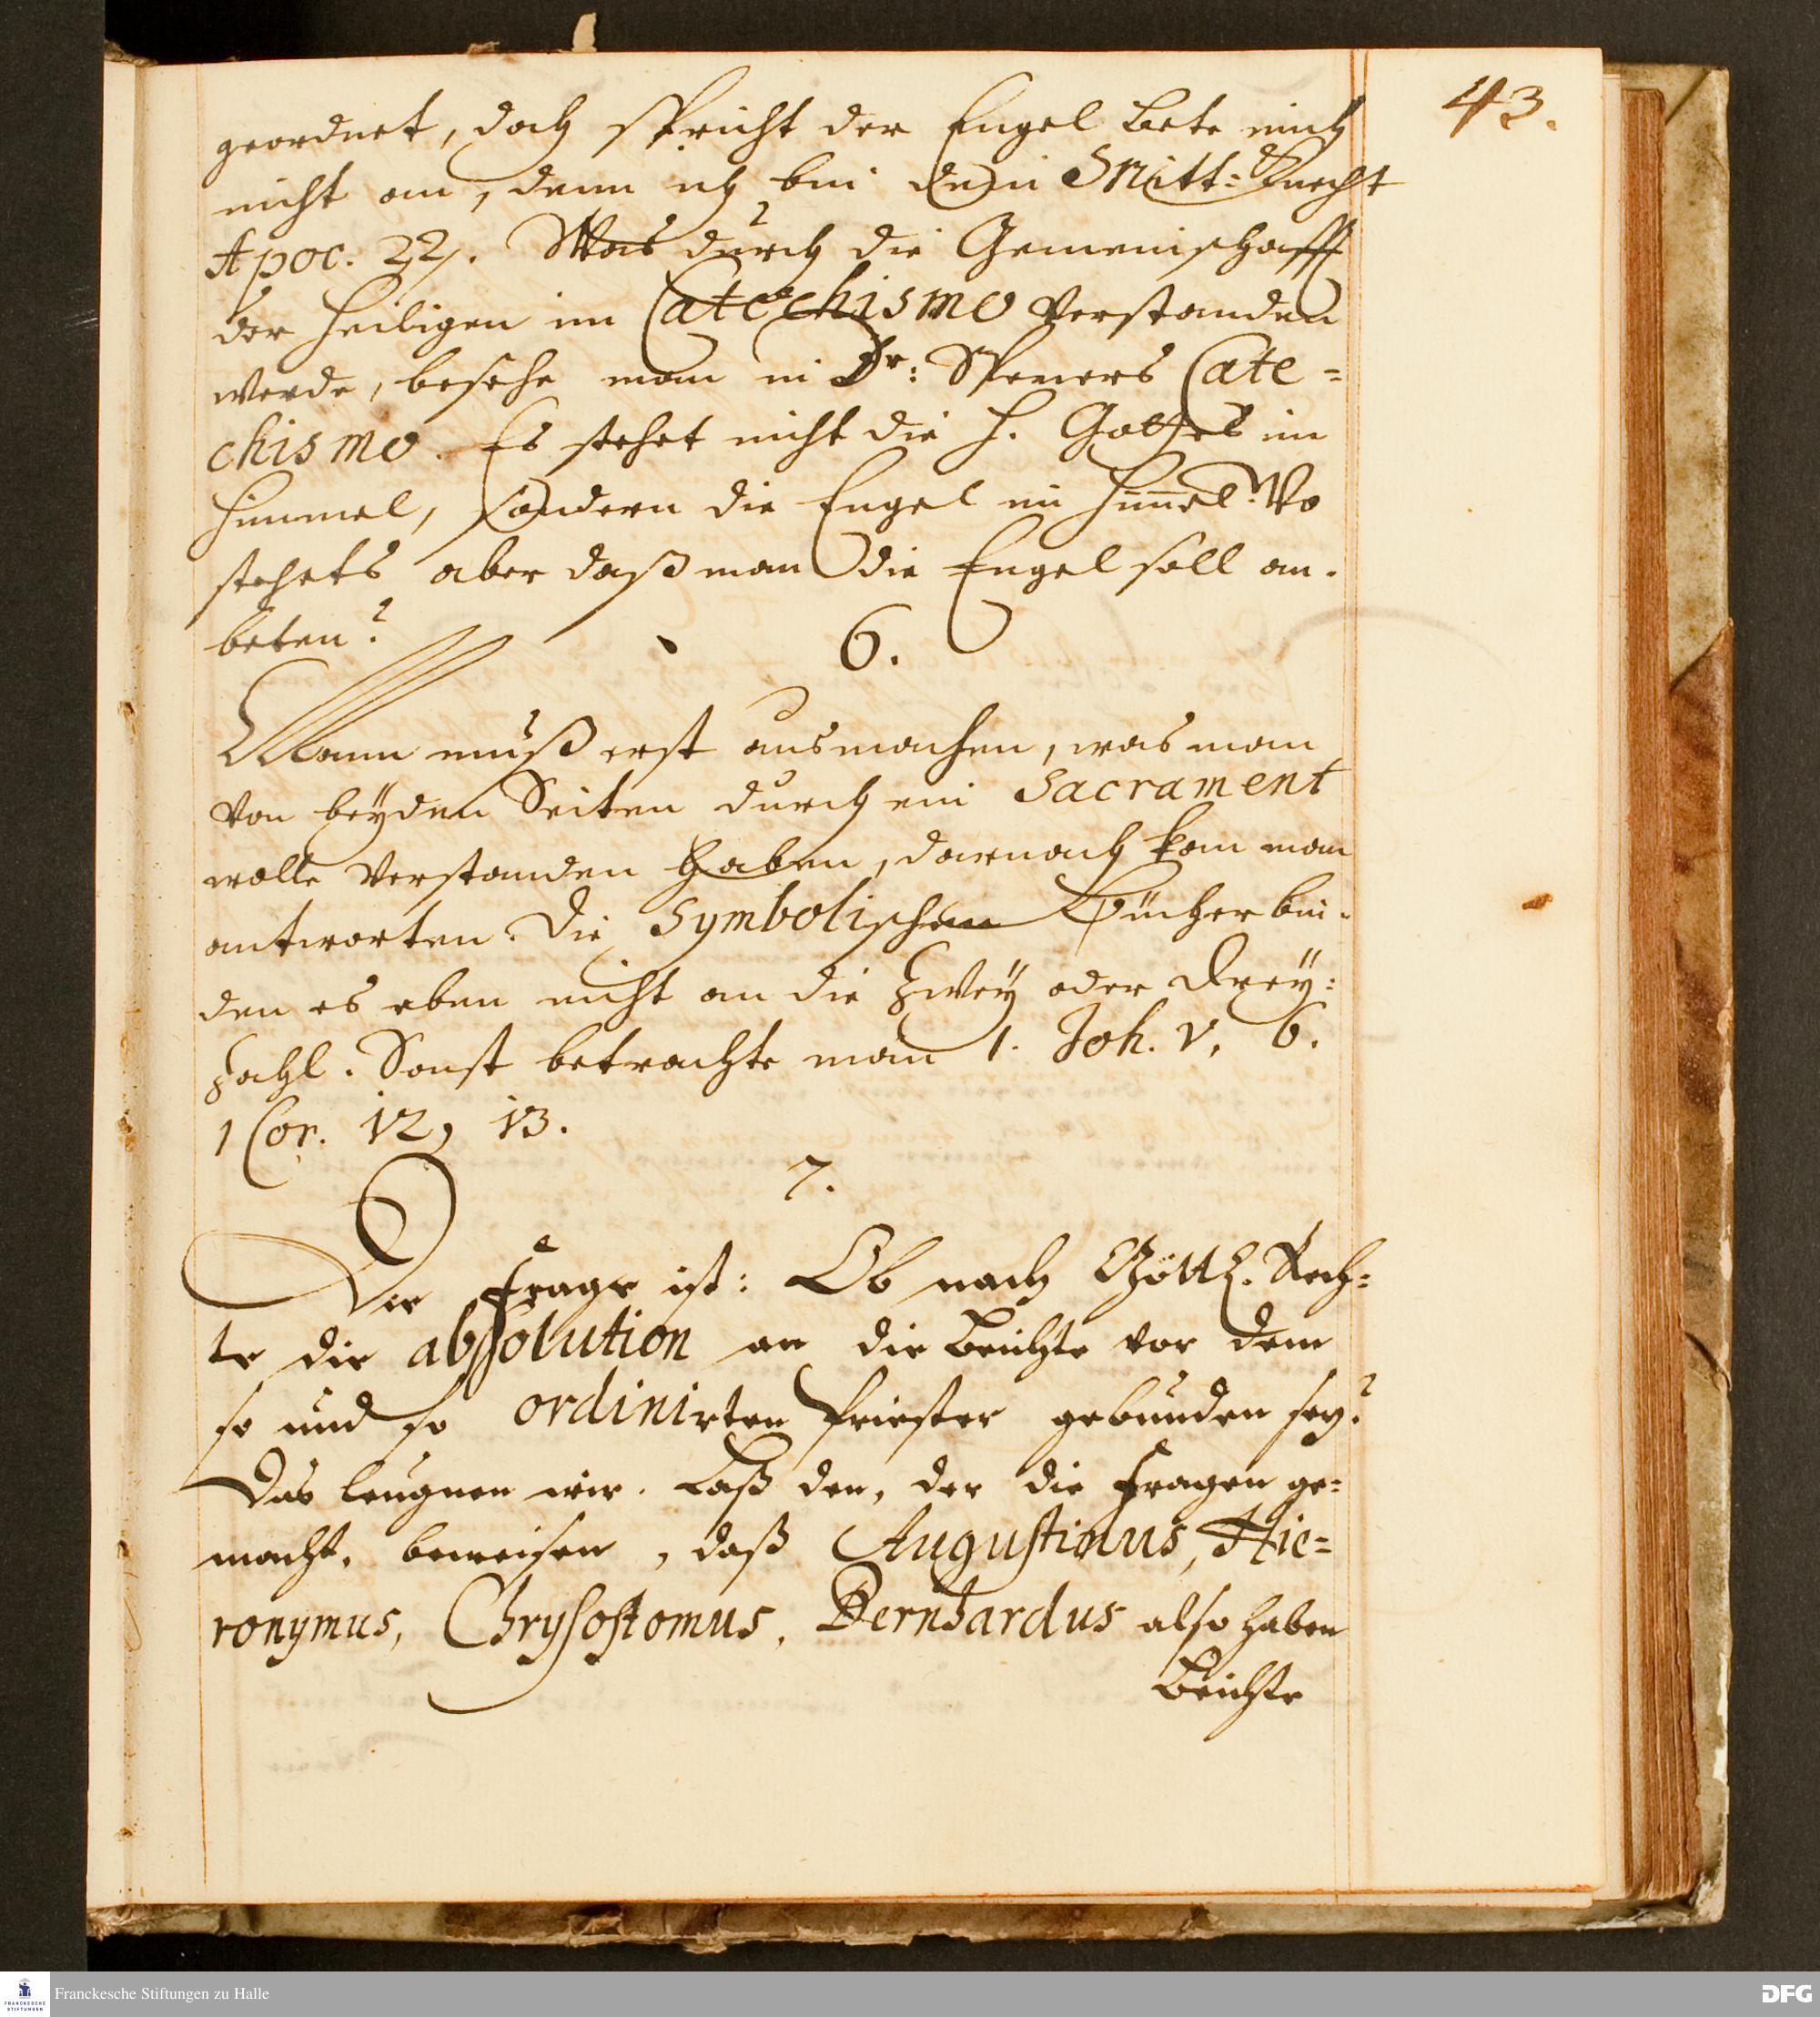 43.
geordnet, doch spricht der Engel bete mich
nicht an, denn ich bin dein Mitt=Knecht
Apoc. 22. Was durch die Gemeinschafft
der Heiligen im Catechismo verstanden
werde, besehe man in Dr: Speners Cate=
chismo. Es stehet nicht die H. Gottes im
Himmel, sondern die Engel im Him̅el. Wo
stehets aber daß man die Engel soll an-
beten?
6.
Mann muß erst ausmachen, was man
von beyden Seiten durch ein Sacrament
wolle verstanden haben, darnach kan man
antworten. Die Symbolischen Bücher bin-
den es eben nicht an die Zwey oder Drey=
Zahl. Sonst betrachte man 1. Joh. V, 6.
1 Cor. 12, 13.
7.
Die Frage ist: Ob nach Göttl. Rech=
te die absolution an die Beichte vor dem
so und so ordinirten Priester gebunden sey?
Das leugnen wir. Laß den, der die Fragen ge=
macht, beweisen, daß Augustinus, Hie=
ronymus, Chrysostomus, Bernhardus also haben
Beichte
Franckesche Stiftungen zu Halle
FRANCKESCHE
STIFTUNGEN
DFG